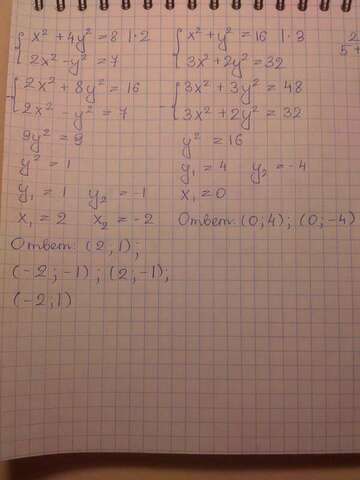 x² + 4y² = 8 | · 2
2x² - y² = 7
2x² + 8y² = 16
2x² - y² = 7
9y² = 9
y² = 1
y₁ = 1 y₂ = -1
x₁ = 2 x₂ = -2
Ответ: (2; 1);
(-2; -1); (2; -1);
(-2; 1)
x² + y² = 16 | · 3
3x² + 2y² = 32
3x² + 3y² = 48
3x² + 2y² = 32
y² = 16
y₁ = 4 y₂ = -4
x₁ = 0
Ответ: (0; 4); (0; -4)
2
5+